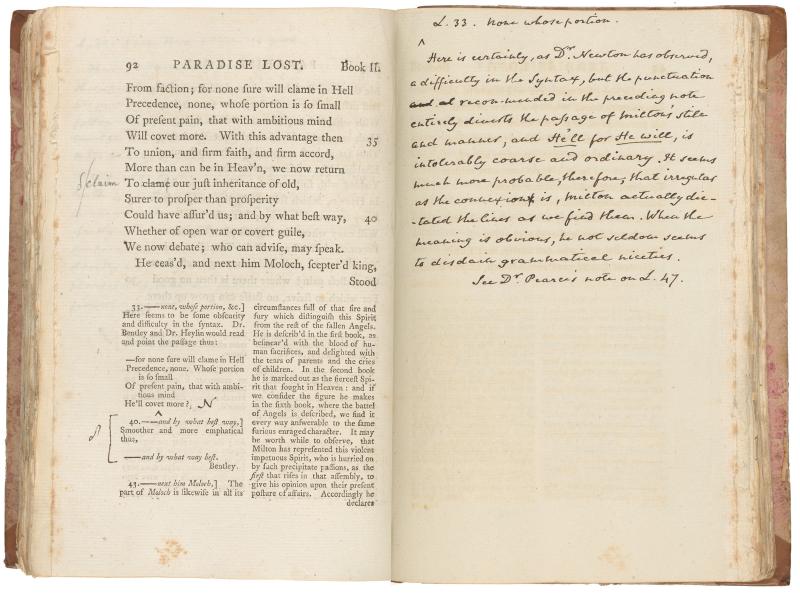 92 PARADISE LOST. Book II.
From faction; for none sure will clame in Hell
Precedence, none, whose portion is so small
Of present pain, that with ambitious mind
Will covet more. With this advantage then 35
To union, and firm faith, and firm accord,
More than can be in Heav'n, we now return
To clame our just inheritance of old,
claim
Surer to prosper than prosperity
Could have assur'd us; and by what best way, 40
Whether of open war or covert guile,
We now debate; who can advise, may speak.
He ceas'd, and next him Moloch, scepter'd king,
Stood
33.—none, whose portion, &c.]
Here seems to be some obscurity
and difficulty in the syntax. Dr.
Bentley and Dr. Heylin would read
and point the passage thus:
—for none sure will clame in Hell
Precedence, none. Whose portion
is so small
Of present pain, that with ambi-
tious mind
He'll covet more?, N
40.——and by what best way,]
Smoother and more emphatical
thus,
—and by what way best.
Bentley.
43.—next him Moloch,] The
part of Moloch is likewise in all its
circumstances full of that fire and
fury which distinguish this Spirit
from the rest of the fallen Angels.
He is describ'd in the first book, as
besmear'd with the blood of hu-
man sacrifices, and delighted with
the tears of parents and the cries
of children. In the second book
he is marked out as the fiercest Spi-
rit that fought in Heaven: and if
we consider the figure he makes
in the sixth book, where the battel
of Angels is described, we find it
every way answerable to the same
furious enraged character. It may
be worth while to observe, that
Milton has represented this violent
impetuous Spirit, who is hurried on
by such precipitate passions, as the
first that rises in that assembly, to
give his opinion upon their present
posture of affairs. Accordingly he
declares
L. 33. None whose portion.
Here is certainly, as Dr. Newton has observed,
a difficulty in the Syntax, but the punctuation
recommended in the preceding note
entirely divests the passage of Milton's stile
and manner, and He'll for He will, is
intolerably coarse and ordinary. It seems
much more probable, therefore, that irregular
as the connexion is, Milton actually dic-
-tated the lines as we find them. When the
meaning is obvious, he not seldom seems
to disdain grammatical niceties.
See Dr. Pearce's note on L. 47.